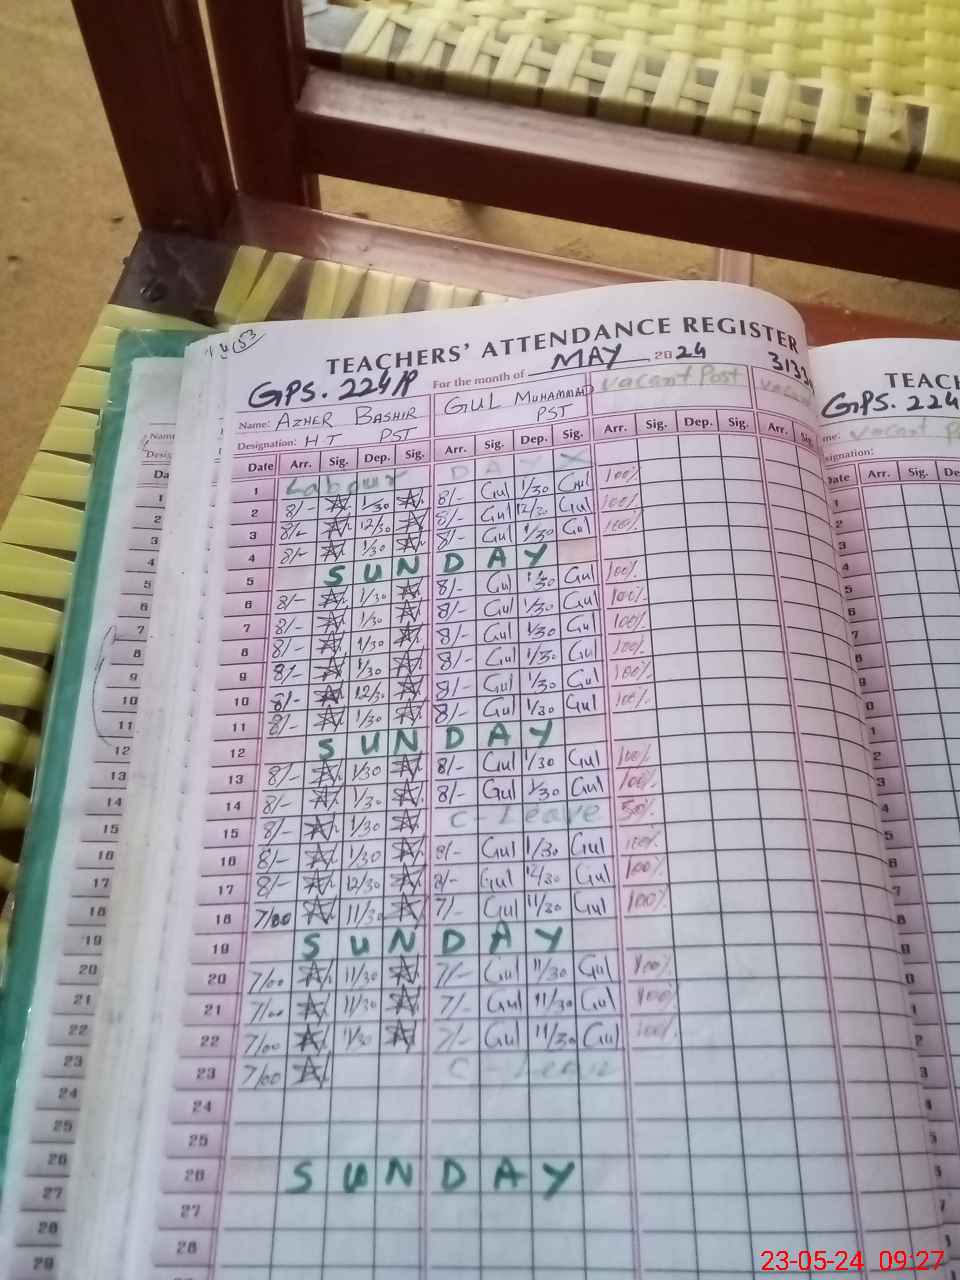 TEACHERS' ATTENDANCE REGISTER
GPS. 224/P For the month of MAY 2024
Name: AZHER BASHIR GUL MUHAMMAD vacant Post
Designation: HT PST PST
Date Arr. Sig. Dep. Sig. Arr. Sig. Dep. Sig. Arr. Sig. Dep. Sig. Arr.
1 Labour DAY
2 8/- 1/30 8/- Gul 1/30 Gul 100%
3 8/- 12/30 8/- Gul 12/30 Gul 100%
4 8/- 1/30 8/- Gul 1/30 Gul 100%
5 SUNDAY
6 8/- 1/30 8/- Gul 1/30 Gul 100%
7 8/- 1/30 8/- Gul 1/30 Gul 100%
8 8/- 1/30 8/- Gul 1/30 Gul 100%
9 8/- 1/30 8/- Gul 1/30 Gul 100%
10 8/- 12/30 8/- Gul 1/30 Gul 100%
11 8/- 1/30 8/- Gul 1/30 Gul 100%
12 SUNDAY
13 8/- 1/30 8/- Gul 1/30 Gul 100%
14 8/- 1/30 8/- Gul 1/30 Gul 100%
15 8/- 1/30 C-Leave 50%
16 8/- 1/30 8/- Gul 1/30 Gul 100%
17 8/- 12/30 8/- Gul 12/30 Gul 100%
18 7/00 11/30 7/- Gul 11/30 Gul 100%
19 SUNDAY
20 7/00 11/30 7/- Gul 11/30 Gul 100%
21 7/00 11/30 7/- Gul 11/30 Gul 100%
22 7/00 11/30 7/- Gul 11/30 Gul 100%
23 7/00 C-Leave
24
25
26 SUNDAY
27
28
TEACH
GPS. 224
vacant
signation:
Date Arr. Sig. De
23-05-24 09:27